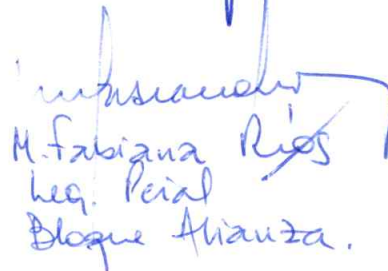 M. Fabiana Ríos
Leg. Pcial
Bloque Alianza.